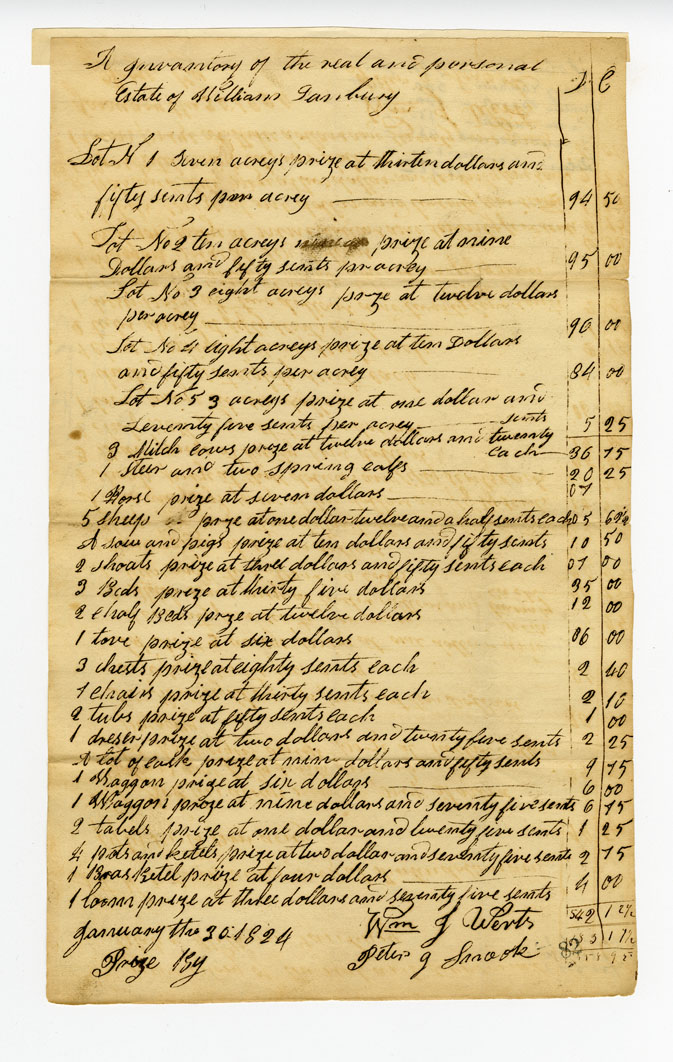 A Invantory of the real and personal
Estate of William Tanbury D. C
Lot No 1 Seven acreys prize at thirten dollars and
fifty sents per acrey 94 50
Lot No 2 ten acreys prize at nine
Dollars and fifty sents pr acrey 95 00
Lot No 3 eight acreys prze at twelve dollars
per acrey 96 00
Lot No 4 eight acreys prize at ten Dollars
and fifty sents per acrey 84 00
Lot No 5 3 acreys prize at one dollar and
Seventy five sents per acrey 5 25
3 Milch cows prize at twelve dollars and twenty sents each 36 75
1 Steer and two spring calfs 20 25
1 Horse prize at seven dollars 07
5 sheep prze at one dollar twelve and a half sents each 05 62½
A sow and pigs prize at ten dollars and fifty sents 10 50
2 shoats prize at three dollars and fifty sents each 07 00
3 Beds prize at thirty five dollars 35 00
2 chaf Beds prze at twelve dollars 12 00
1 tove prize at six dollars 06 00
3 chests prize at eighty sents each 2 40
7 chairs prize at thirty sents each 2 10
2 tubs prize at fifty sents each 1 00
1 dreser prize at two dollars and twenty five sents 2 25
A lot of cask prize at nine dollars and fifty sents 9 75
1 Waggon prize at six dollars 6 00
1 Waggon proze at nine dollars and seventy five sents 6 75
2 tabels prize at one dollar and twenty five sents 1 25
4 pots and ketels prize at two dollar and seventy five sents 2 75
1 Bras Ketel prize at four dollars 4 00
1 loom prize at three dollars and seventy five sents
542 1 2½
January the 30 1824 Wm J Werts
Prize By Peter g Snook
82